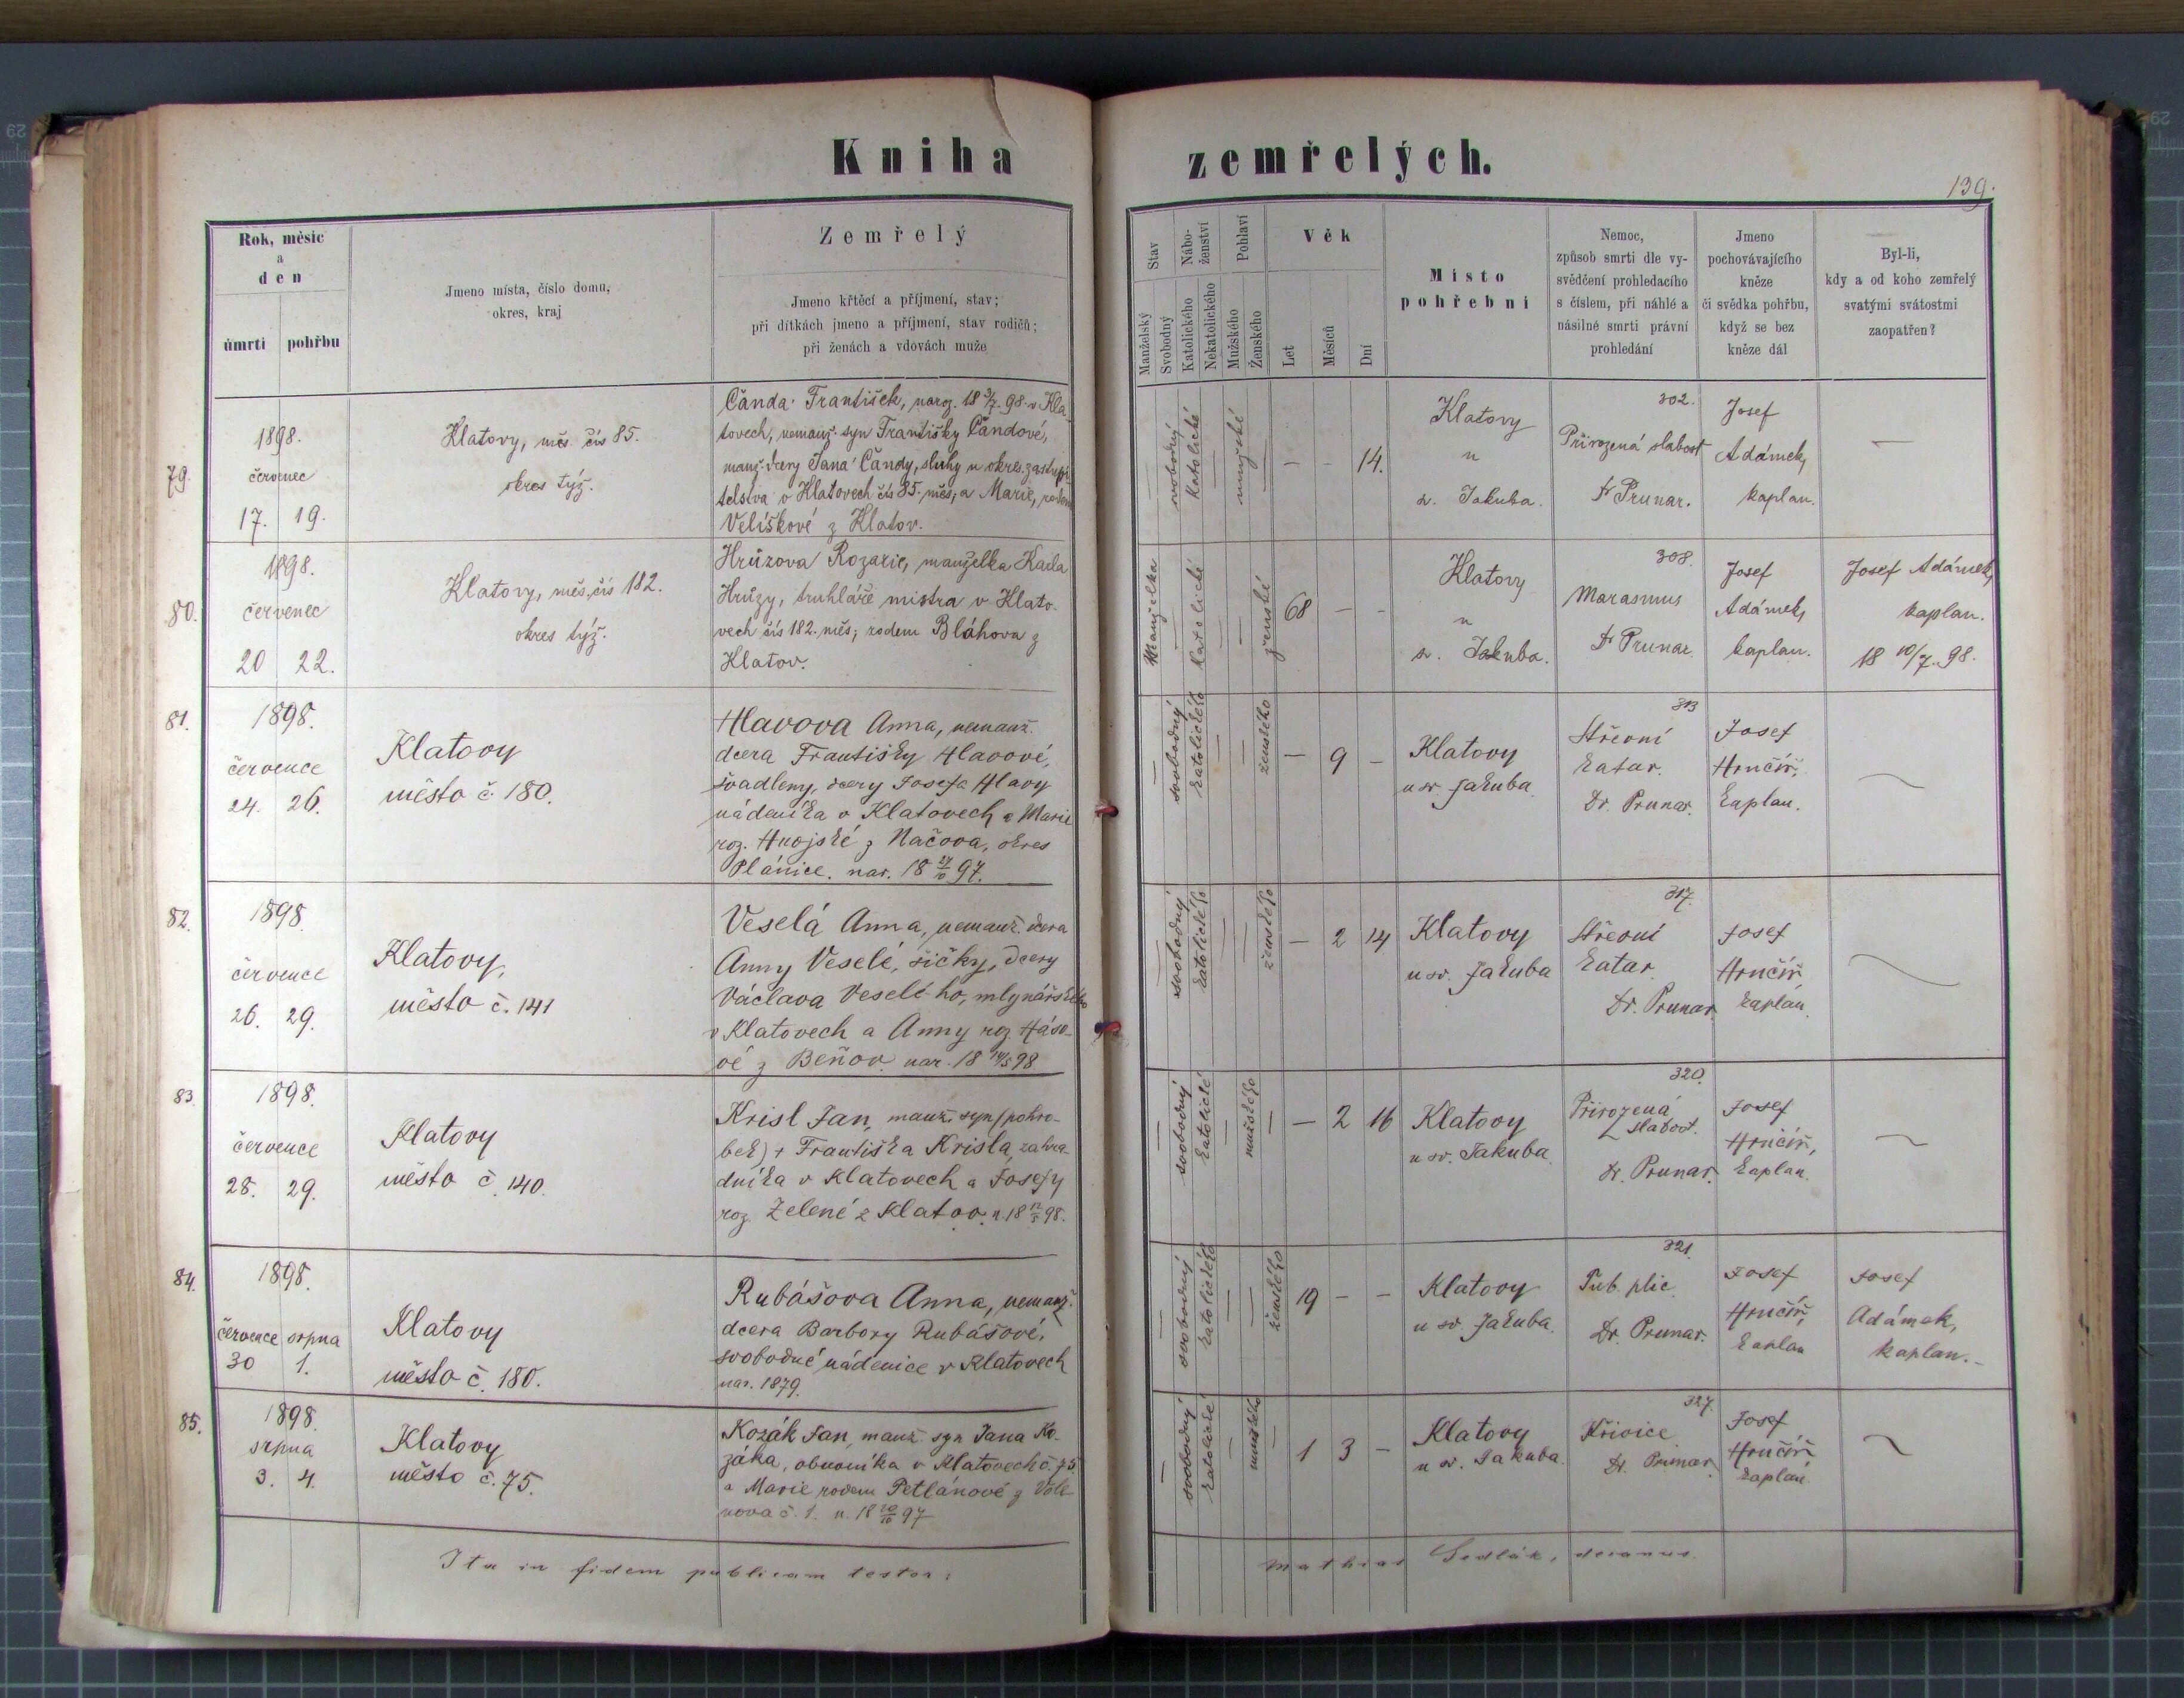 Kniha zemřelých.
139.
Rok, měsíc
a
den
úmrtí
pohřbu
Jmeno místa, číslo domu,
okres, kraj
Zemřelý
Jmeno křtěcí a příjmení, stav;
při dítkách jmeno a příjmení, stav rodičů;
při ženách a vdovách muže
Stav
Manželský
Svobodný
Nábo-
ženství
Katolického
Nekatolického
Pohlaví
Mužského
Ženského
Věk
Let
Měsíců
Dní
Místo
pohřební
Nemoc,
způsob smrti dle vy-
svědčení prohledacího
s číslem, při náhlé a
násilné smrti právní
prohledání
Jmeno
pochovávajícího
kněze
či svědka pohřbu,
když se bez
kněze dál
Byl-li,
kdy a od koho zemřelý
svatými svátostmi
zaopatřen?
79.
1898.
červenec
17. 19.
Klatovy, měs. čís 85.
okres týž.
Čanda František, naroz. 18 3/7. 98. v Kla-
tovech, nemanž. syn Františky Čandové,
manž. dcery Jana Čandy, sluhy u okres. zastupi-
telstva v Klatovech čís 85. měs, a Marie, rodem
Velíškové z Klatov.
svobodný
katolické
mužské
– – 14.
Klatovy
u
sv. Jakuba.
302.
Přirozená slabost
Dr Prunar.
Josef
Adámek,
kaplan.
—
80.
1898.
červenec
20 22.
Klatovy, měs. čís 182.
okres týž.
Hrůzova Rozarie, manželka Karla
Hrůzy, truhláře mistra v Klato-
vech čís 182. měs, rodem Bláhova z
Klatov.
Manželka
katolické
ženské
68 – –
Klatovy
u
sv. Jakuba.
308.
Marasmus
Dr Prunar.
Josef
Adámek,
kaplan.
Josef Adámek,
kaplan.
18 10/7. 98.
81.
1898.
července
24. 26.
Klatovy
město č. 180.
Hlavova Anna, nemanž.
dcera Františky Hlavové,
švadleny, dcery Josefa Hlavy
nádeníka v Klatovech a Marie
roz. Hnojské z Načova, okres
Plánice. nar. 18 24/10 97.
svobodný
katolického
ženského
– 9 –
Klatovy
u sv. Jakuba.
313
Střevní
katar.
Dr. Prunar.
Josef
Hrnčíř,
kaplan.
82.
1898.
července
26. 29.
Klatovy,
město č. 141
Veselá Anna, nemanž. dcera
Anny Veselé, šičky, dcery
Václava Veselé-ho, mlynářského
v Klatovech a Anny roz. Háso-
vé z Beňov. nar. 18 14/5 98
svobodný
katolického
ženského
– 2 14
Klatovy
u sv. Jakuba
317.
Střevní
katar.
Dr. Prunar.
Josef
Hrnčíř
kaplan.
83.
1898.
července
28. 29.
Klatovy
město č. 140.
Krisl Jan, manž. syn (pohro-
bek) + Františka Krisla, zahra-
dníka v Klatovech a Josefy
roz. Zelené z Klatov. n. 18 12/5 98.
svobodný
katolické
mužského
– 2 16
Klatovy
u sv. Jakuba.
320.
Přirozená
slabost.
Dr. Prunar.
Josef
Hrnčíř,
kaplan.
84.
1898.
července srpna
30 1.
Klatovy
město č. 180.
Rubášova Anna, nemanž.
dcera Barbory Rubášové,
svobodné nádenice v Klatovech
nar. 1879.
svobodný
katolického
ženského
19 – –
Klatovy
u sv. Jakuba.
321.
Tub. plic
Dr. Prunar.
Josef
Hrnčíř,
kaplan
Josef
Adámek,
kaplan.–
85.
1898.
srpna
3. 4.
Klatovy
město č. 75.
Kozák Jan, manž. syn Jana Ko-
záka, obuvníka v Klatovech č. 75
a Marie rodem Petlánové z
č. 1. n. 18 20/10 97
svobodný
katolické
mužského
1 3 –
Klatovy
u sv. Jakuba.
327.
Křivice
Dr. Prunar.
Josef
Hrnčíř
kaplan.
Ita in fidem publicam testor: Mathias Sedlák, decanus.